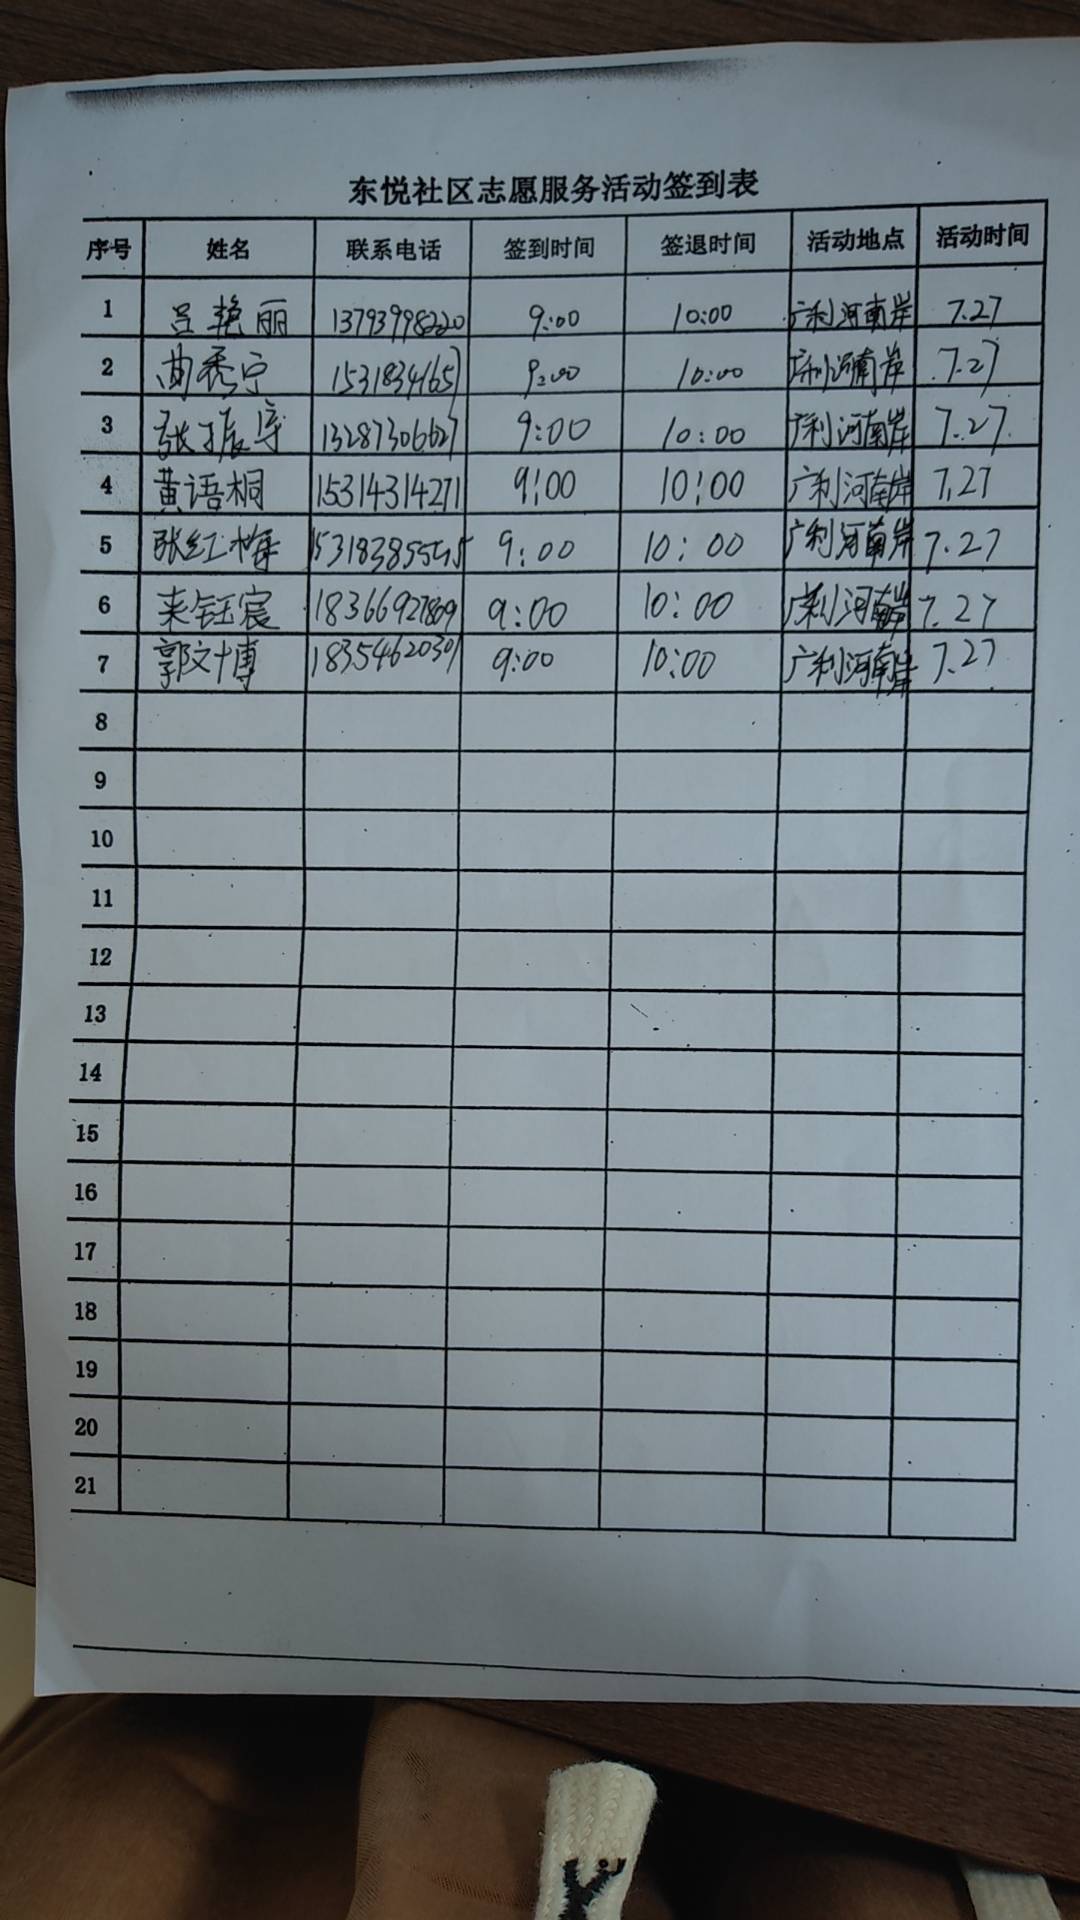 东悦社区志愿服务活动签到表
序号 姓名 联系电话 签到时间 签退时间 活动地点 活动时间
1 吕艳丽 13793998220 9:00 10:00 广利河南岸 7.27
2 曲秀宁 15318341651 9:00 10:00 广利河南岸 7.27
3 张振宇 13287306627 9:00 10:00 广利河南岸 7.27
4 黄语桐 15314314271 9:00 10:00 广利河南岸 7.27
5 张红梅 9:00 10:00 广利河南岸 7.27
6 来钰宸 18366927809 9:00 10:00 广利河南岸 7.27
7 郭文博 18354620301 9:00 10:00 广利河南岸 7.27
8
9
10
11
12
13
14
15
16
17
18
19
20
21